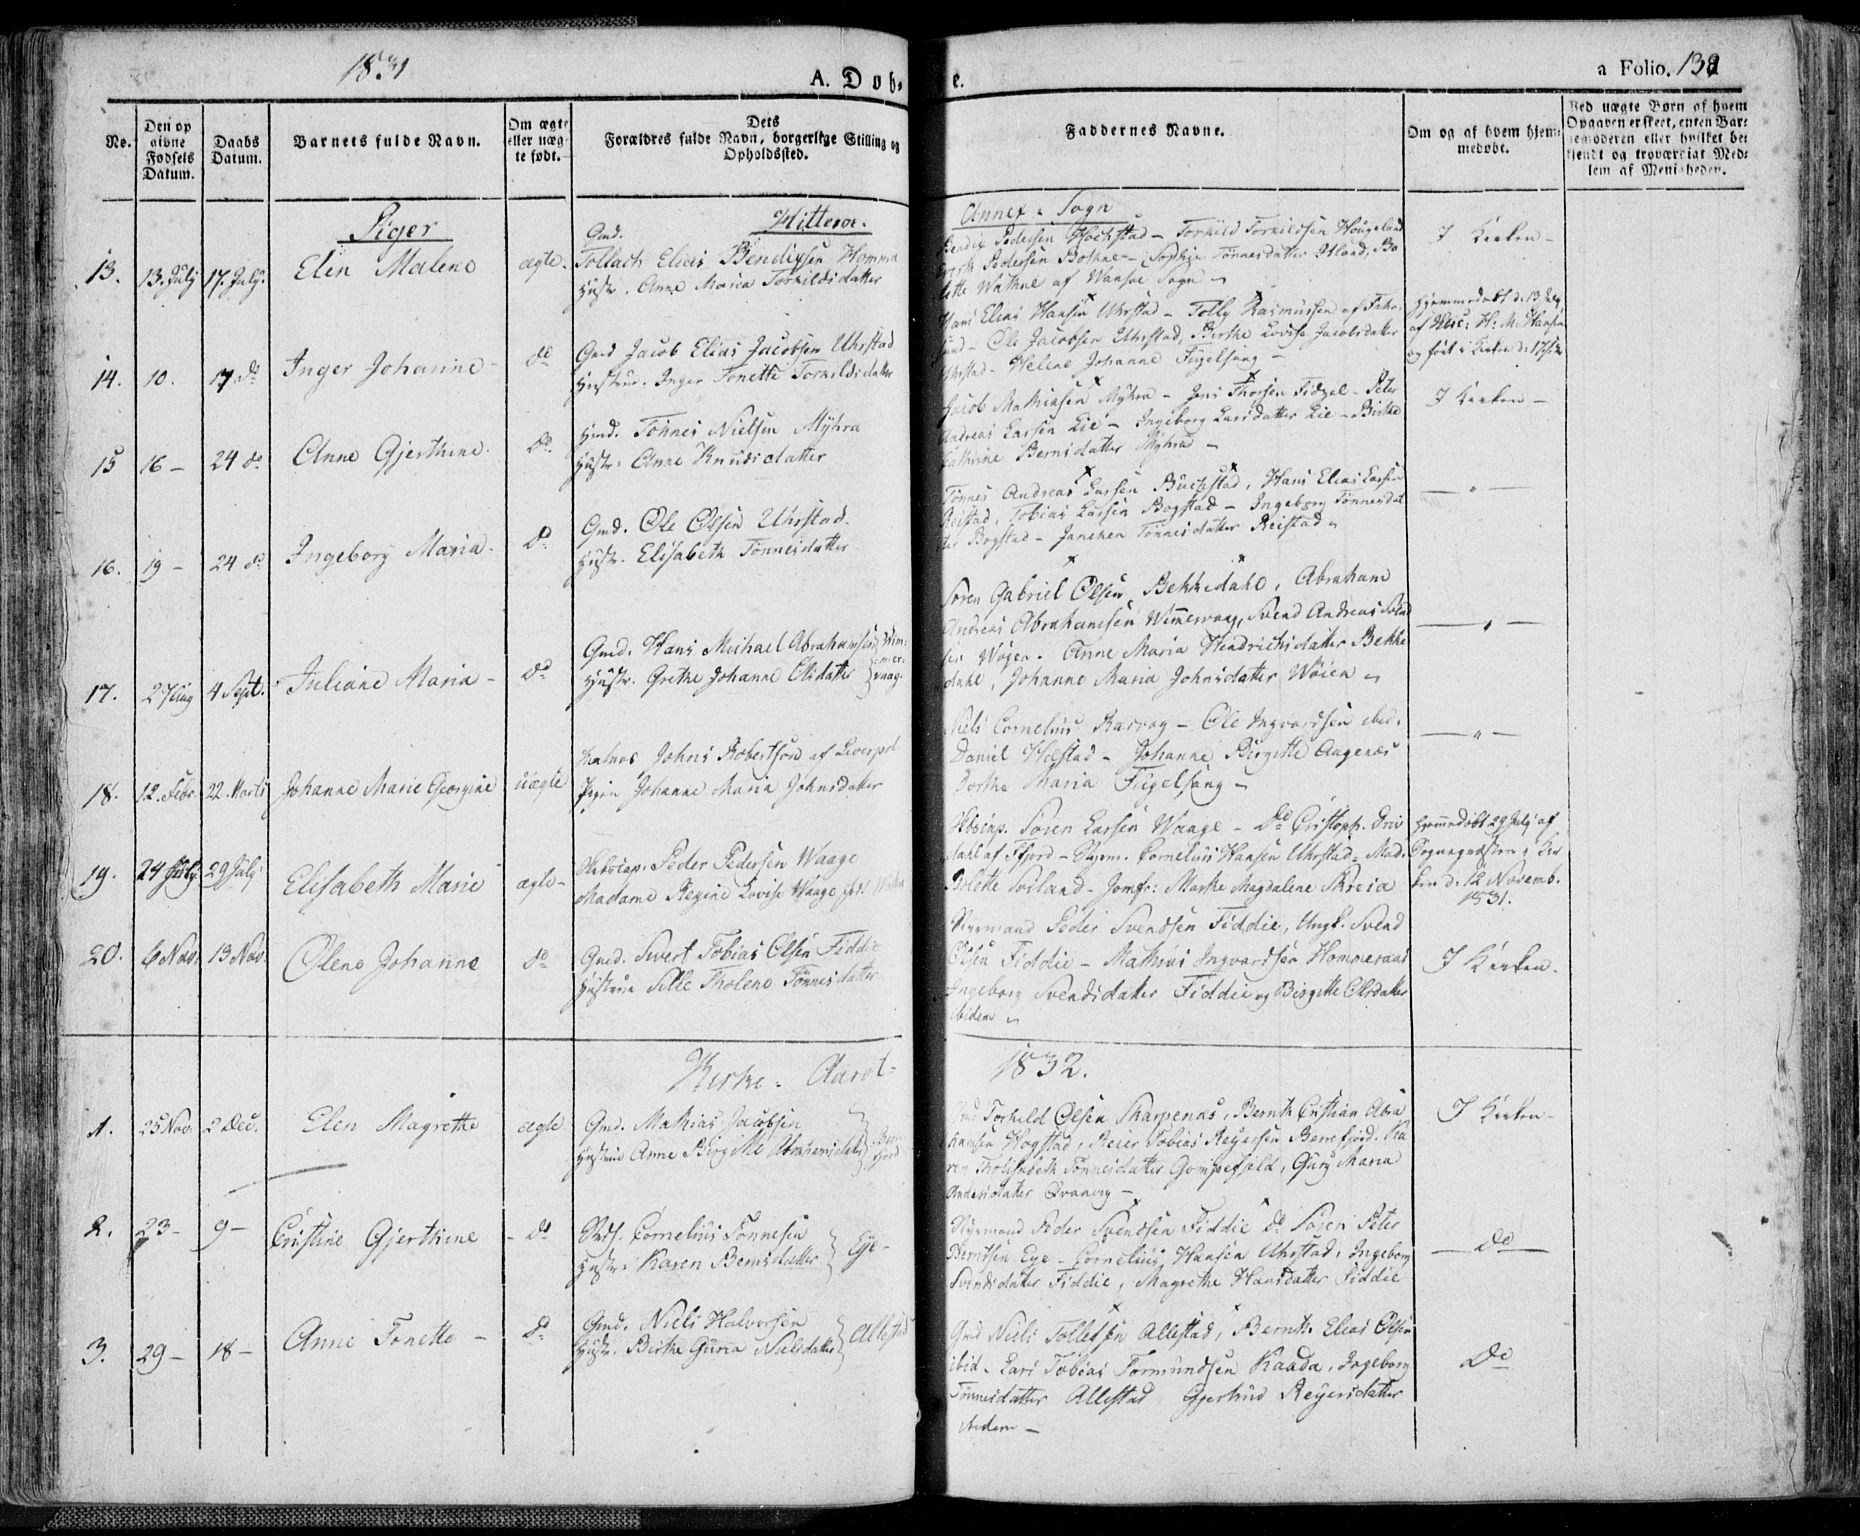 1831
A. Døb-
e.
a Folio. 132
No.
Den op
givne
Fødsels
Datum.
Daabs
Datum.
Barnets fulde Navn.
Om ægte
eller uæg-
te født.
Dets
Forældres fulde Navn, borgerlige Stilling og
Opholdssted.
Faddernes Navne.
Om og af hvem hjem-
medøbt.
Ved uægte Børn af hvem
Opgaven er skeet, enten Bar-
nemoderen eller hvilket be-
kjendt og troværdigt Med-
lem af Menigheden.
Piger
Hitterøe
Annex - Sogn
13. 13. July 17. July. Elen Malene ægte.
Gmd.
Tollach Elias Bendixsen Homma
Hustr. Anne Maria Torkildsdatter
Bendix Pedersen Hochstad - Torkild Torkildsen Hougeland
Pedersen - Sophie Tönnesdatter Bo
lette Wathne af Wansøe Sogn
I Kirken -
14. 10. 17 do Inger Johanne - do
Gmd Jacob Elias Jacobsen Uhrstad
Hustrue. Inger Tonette Torkildsdatter
Hans Elias Hansen Uhrstad - Tolly Rasmussen af Fahr-
sund - Ole Jacobsen Uhrstad, Birthe Lovise Jacobsdatter
Uhrstad - Helene Johanne Fugelsang -
Hjemmedøbt d. 13 July
af H: M: Hansen
og ført i Kirken d. 17
15 16 - 24 do Anne Gjerthine. do
Tönnes Nielsen Myhra
Hustr: Anne Knudsdatter
Jacob Mathiasen Myhra - Jens Thorsen Fidsel - Peter
Andreas Larsen Lie - Ingeborg Larsdatter Lie - Birthe
Cathrine Berntsdatter Myhra -
I Kirken -
16. 19 - 24 do Ingeborg Maria. do
Gmd. Ole Olsen Uhrstad.
Hustr. Elisabeth Tönnesdatter
Tönnes Andreas Larsen Bugstad, Hans Elias Larsen
Reistad, Tobias Larsen Bogstad - Ingeborg Tönnesdat
ter Bogstad - Janchen Tönnesdatter Reistad
- " -
17. 27 Aug 4 Sept. Juliane Maria - do
Gmd. Hans Michael Abrahamsen Wim-
mer-
vaag.
Hustr. Grethe Johanne Olsdatter
Søren Gabriel Olsen Bekkedahl, Abraham
Andreas Abrahamsen Wimmervaag, Svend Andreas Svend
sen Wøyen. Anne Maria Hendrichsdatter Bekke
dahl, Johanne Maria Johnsdatter Wöien
- " -
18. 12. Febr. 22. Marts Johanne Marie Georgine uægte
Johns Robertson af Liverpol
Pigen Johanne Maria Johnsdatter
Niels Cornelius Rasvog - Ole Ingvardsen ibid.
Daniel Hæstad - Johanne Birgitte Augenæs
Dorthe Maria Fugelsang -
- " -
19. 24 July 29 July. Elisabeth Marie ægte -
Skbscap. Peder Pedersen Waage
Madame Regine Lovise Waage
Skbscap. Søren Larsen Waage - do Cristoph.
dahl af - Cornelius Hansen Uhrstad - Mad.
Bolette - Jomfr: Marthe Magdalene Skreia
Hjemmedøbt 29 July af
Sognepræsten i Kir
ken d. 12 Novemb.
1831.
20. 6 Nov. 13 Nov. Olene Johanne do
Gmd. Sivert Tobias Olsen Fiddie
Hustrue Sille Tholene Tönnesdatter
Styrmand Peder Svendsen Fiddie, Ungk. Svend
Olsen Fiddie - Mathias Ingvardsen Hommeraas
Ingeborg Svendsdatter Fiddie og Birgitte Olsdatter
ibidem
I Kirken.
Kirke - Aaret -
1832.
1. 25 Nov. 2 Dec. Elen Magrethe ægte.
Gmd. Mathias Jacobsen
Hustrue Anne Birgitte Abrahamsdatter
Berre-
fjord
Gmd Torkeld Olsen Skarpenæs, Bernth Cristian Abra
hamsen Hogstad, Reier Tobias Reyersen Berrefjord. Ka
ren Tholisabeth Tönnesdatter Gompefjeld, Gury Maria
Andersdatter Qvanvig -
I Kirken -
2. 23 - 9 - Cristine Gjerthine - do
Cornelius Tönnesen
Hustr. Karen Berntsdatter
Eye -
Styrmand Peder Svendsen Fiddie do Sören Peter
Berntsen Eye - Cornelius Hansen Uhrstad, Ingeborg
Svendsdatter Fiddie, Magrethe Hansdatter Fiddie
- do -
3. 29 - 18 - Anne Tonette - do
Gmd. Niels Halversen
Hustr. Birthe Guria Nielsdatter
Allestad
Gmd Niels Tollefsen Allestad, Bernth Elias Olsen
ibid - Lars Tobias Tormundsen Kaada, Ingeborg
Tönnesdatter Allestad Gjertrud Reyersdatter
ibidem -
do